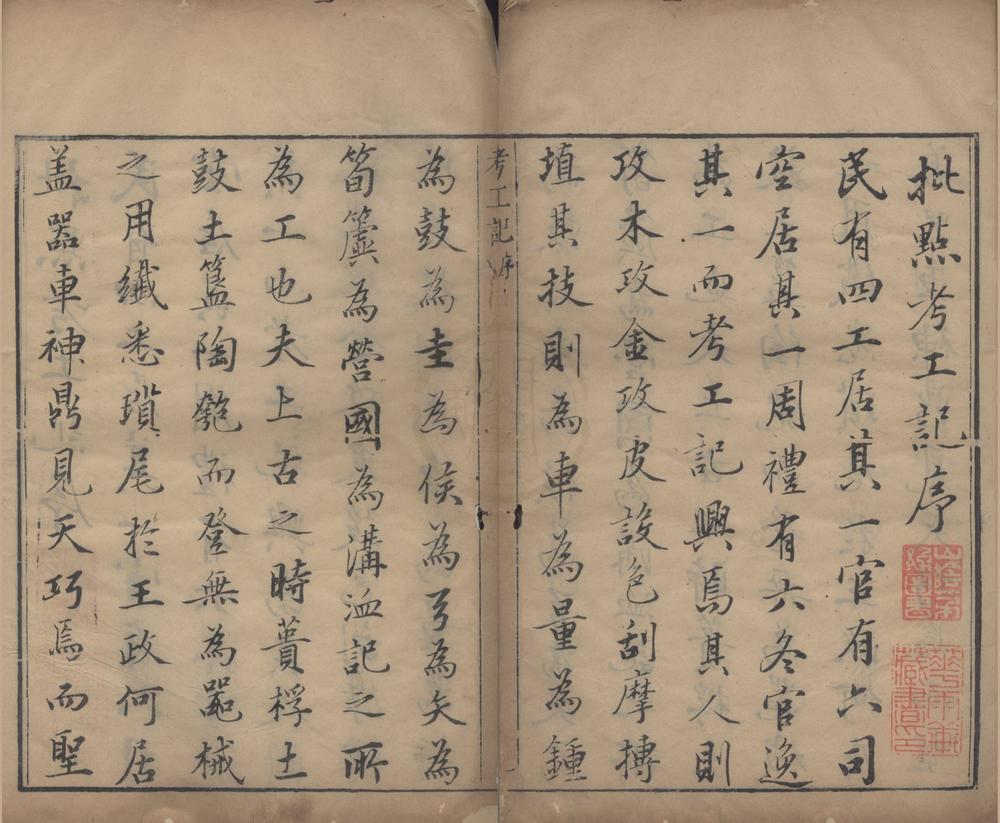 批點考工記序
民有四工居其一官有六司
空居其一周禮有六冬官逸
其一而考工記興焉其人則
攻木攻金攻皮設色刮摩摶
埴其技則為車為量為鍾
考工記 序
為鼓為圭為侯為弓為矢為
筍簴為營國為溝洫記之所
為工也夫上古之時蕢桴土
鼓土簋陶匏而登無為器械
之用纖悉瑣尾於王政何居
盖器車神鼎見天巧焉而聖